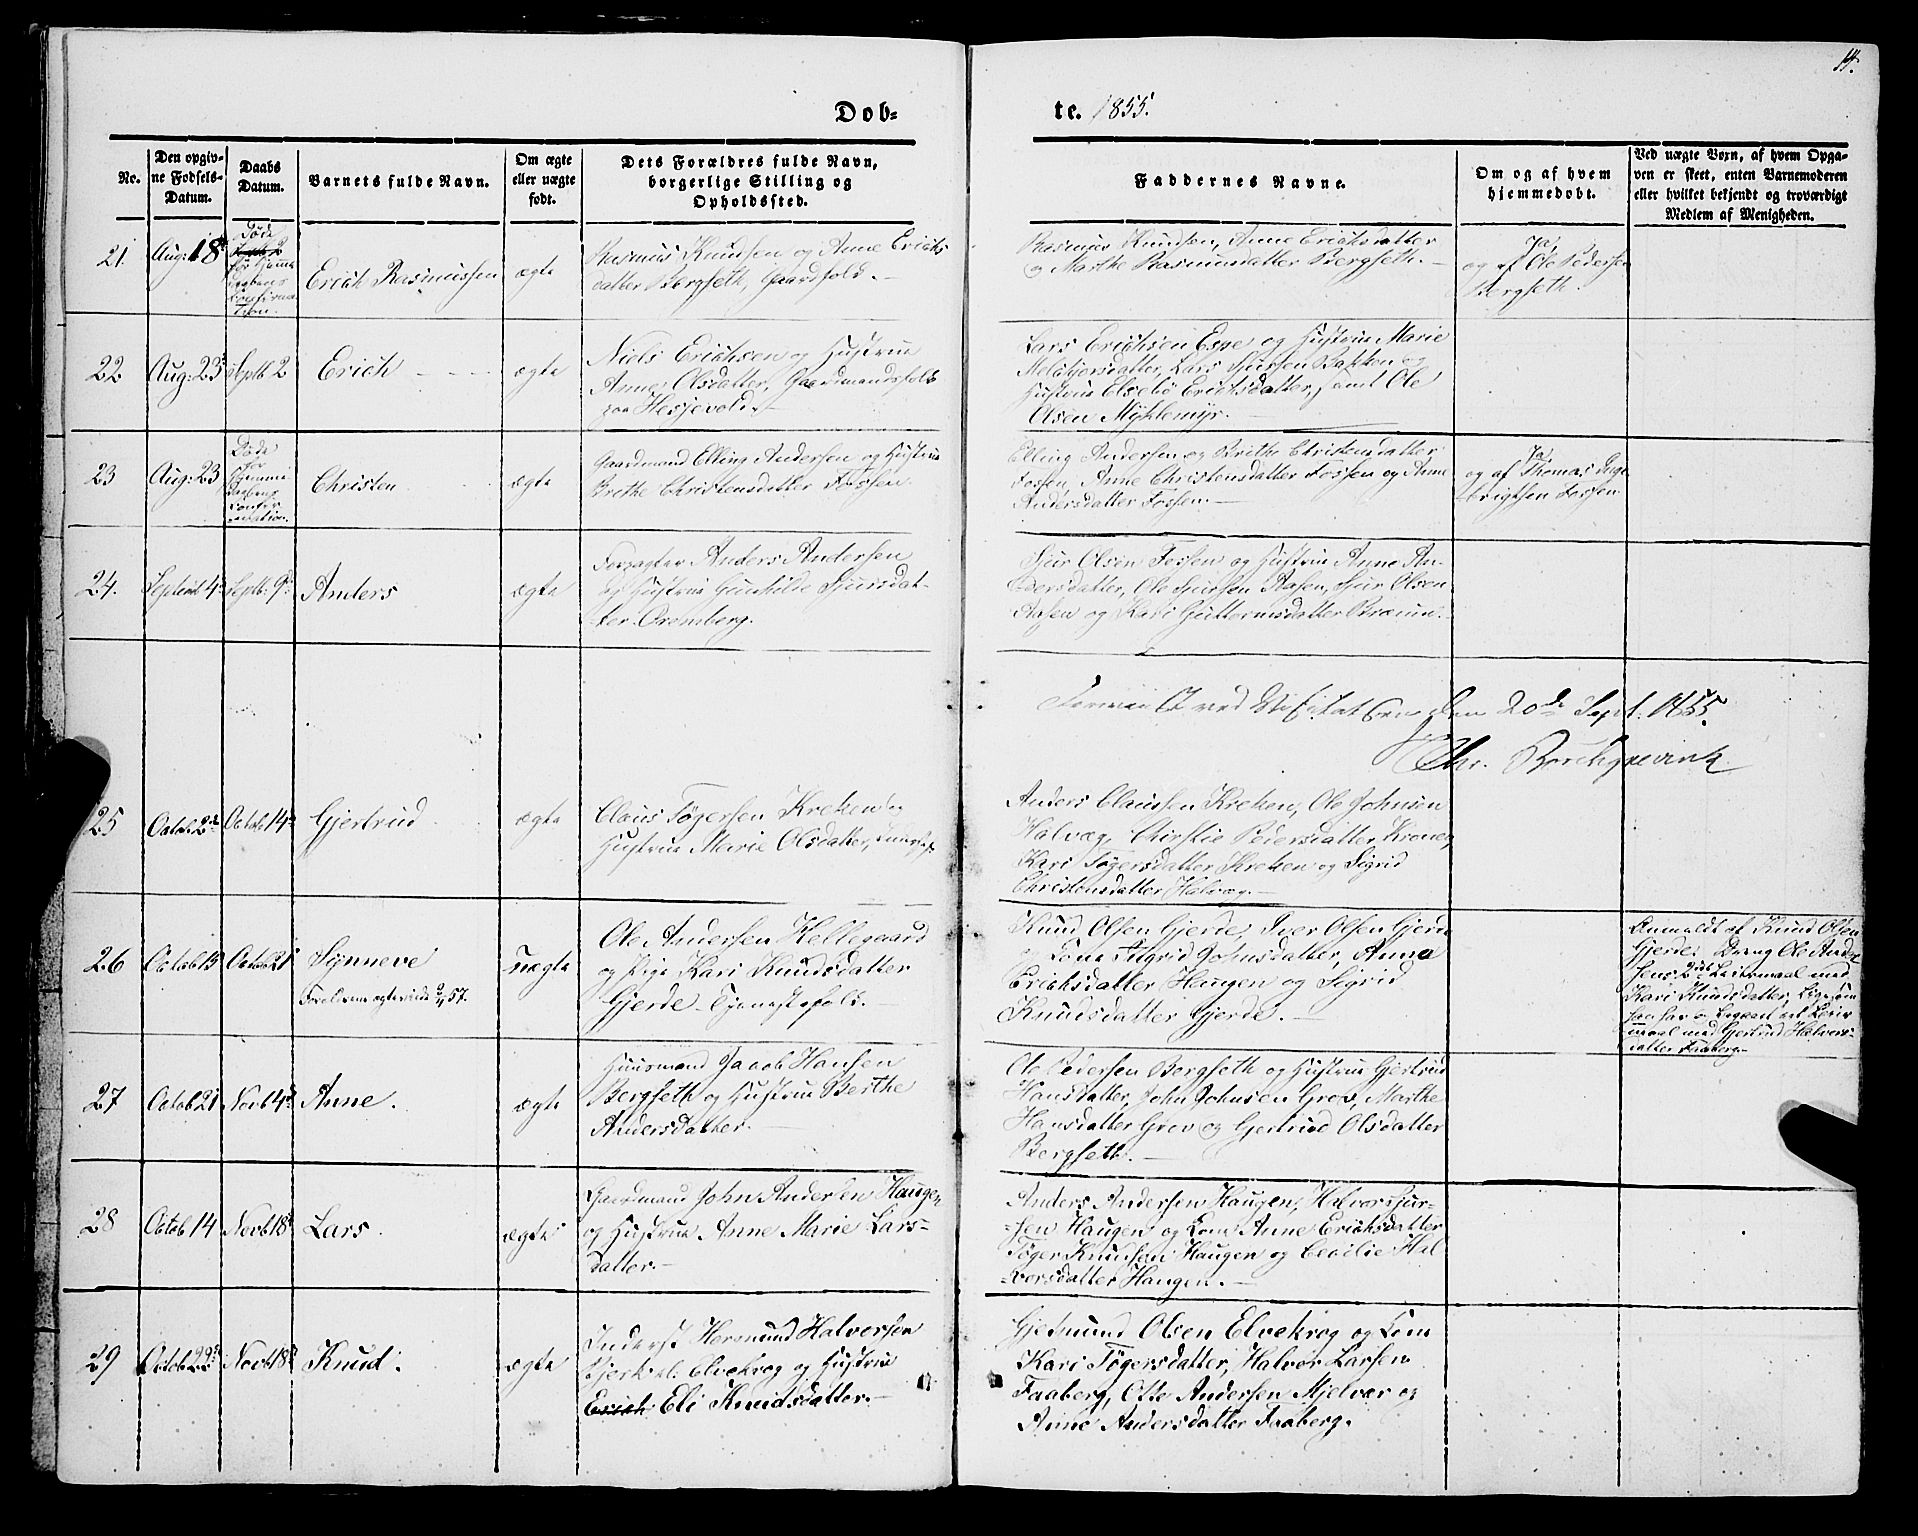 14.
Døb=
te. 1855.
No.
Den opgiv=
ne Fødsels=
Datum.
Daabs
Datum.
Barnets fulde Navn.
Om ægte
eller uægte
født.
Dets Forældres fulde Navn,
borgerlige Stilling og
Opholdssted.
Faddernes Navne.
Om og af hvem
hjemmedøbt.
Ved uægte Børn, af hvem Opga=
ven er skeet, enten Barnemoderen
eller hvilket bekjendt og troværdigt
Medlem af Menigheden.
21.
Aug: 18
Døde
før Hjemme
daabens
Confirma
tion.
Erich Rasmussen
ægte
Rasmus Knudsen og Anne Erichs
datter Bergseth, Gaardfolk.
Rasmus Knudsen, Anne Erichsdatter
og Marthe Rasmusdatter Bergseth.
Ja,
og af Ole Pedersen
Bergseth.
22
Aug: 23
Septb 2
Erich
ægte
Niels Erichsen og Hustrue
Anne Olsdatter, Gaardmandsfolk
paa Hesjevold.
Lars Erichsen Espe og Hustrue Marie
Melchjorsdatter, Lars Sjursen Bakken og
Hustrue Elsebe Erichsdatter, samt Ole
Olsen Myklemyr.
23
Aug: 23
Døde
før
Hjemme
Daabens
Confir
mation.
Christen
ægte
Gaardmand Elling Andersen og Hustrue
Brethe Christensdatter Fossen.
Elling Andersen og Brithe Christensdatter
Fossen, Anne Christensdatter Fossen og Anne
Andersdatter Fossen.
Ja,
og af Thomas Inge
brigtsen Fossen
24.
Septemb 4
Septb: 9
Anders
ægte
Forpagter Anders Andersen
og Hustrue Gunhilde Sjursdat-
ter Ormberg.
Sjur Olsen Fossen og Hustrue Anne An-
dersdatter, Ole Sjursen Aasen, Sjur Olsen
Aasen og Kari Guttormsdatter Bræcun.
ved Visitatsen den 20de Sept. 1855.
Chr. Borchgrevink
25
Octob 2
Octob 14
Gjertrud
ægte
Claus Tøgersen Kreken og
Hustrue Marie Olsdatter,
Anders Claussen Kreken, Ole Johnsen
Halvæg, Chirstie Pedersdatter Kroneg
Kari Tøgersdatter Kreken og Sigrid
Christensdatter Halvæg.
26
Octob 15
Octob 21
Synneve
Forældrene ægteviede 57.
uægte
Ole Andersen Kellegaard
og Pige Kari Knudsdatter
Gjerde. Tjenestefolk.
Knud Olsen Gjerde, Iver Olsen Gjerde
og Kone Sigrid Johnsdatter, Anna
Erichsdatter Haugen og Sigrid
Knudsdatter Gjerde.
Anmeldt af Knud Olsen
Gjerde: Dreng Ole Ander
sens 2det Leiermaal med
Kari Knudsdatter, ligesom
han har og begaaet eet Leier
maal med Gjertrud Halvors-
datter Faaberg.
27
Octob 21
Novb 4
Anne.
ægte
Huusmand Jacob Hansen
Bergseth og Hustrue Berthe
Andersdatter.
Ole Pedersen Bergseth og Hustrue Gjertrud
Hansdatter, John Johnsen Grov, Marthe
Hansdatter Grov og Gjertrud Olsdatter
Bergseth.
28
Octob 14
Novb 18
Lars
ægte
Gaardmand John Andersen Haugen
og Hustrue Anne Marie Lars-
datter.
Anders Andersen Haugen, Halvor Iver-
sen Haugen og Kone Anne Erichsdatter
Tøger Knudsen Haugen og Cecilie Hal
vorsdatter Haugen.
29
Octob 22
Novb 18
Knud.
ægte
Inderst Hermund Halvorsen
Elvekrog og Hustrue
Erich Eli Knudsdatter.
Gjermund Olsen Elvekrog og Kone
Kari Tøgersdatter, Halvor Larsen
Faaberg, Otte Andersen Mjelvær og
Anne Andersdatter Faaberg.